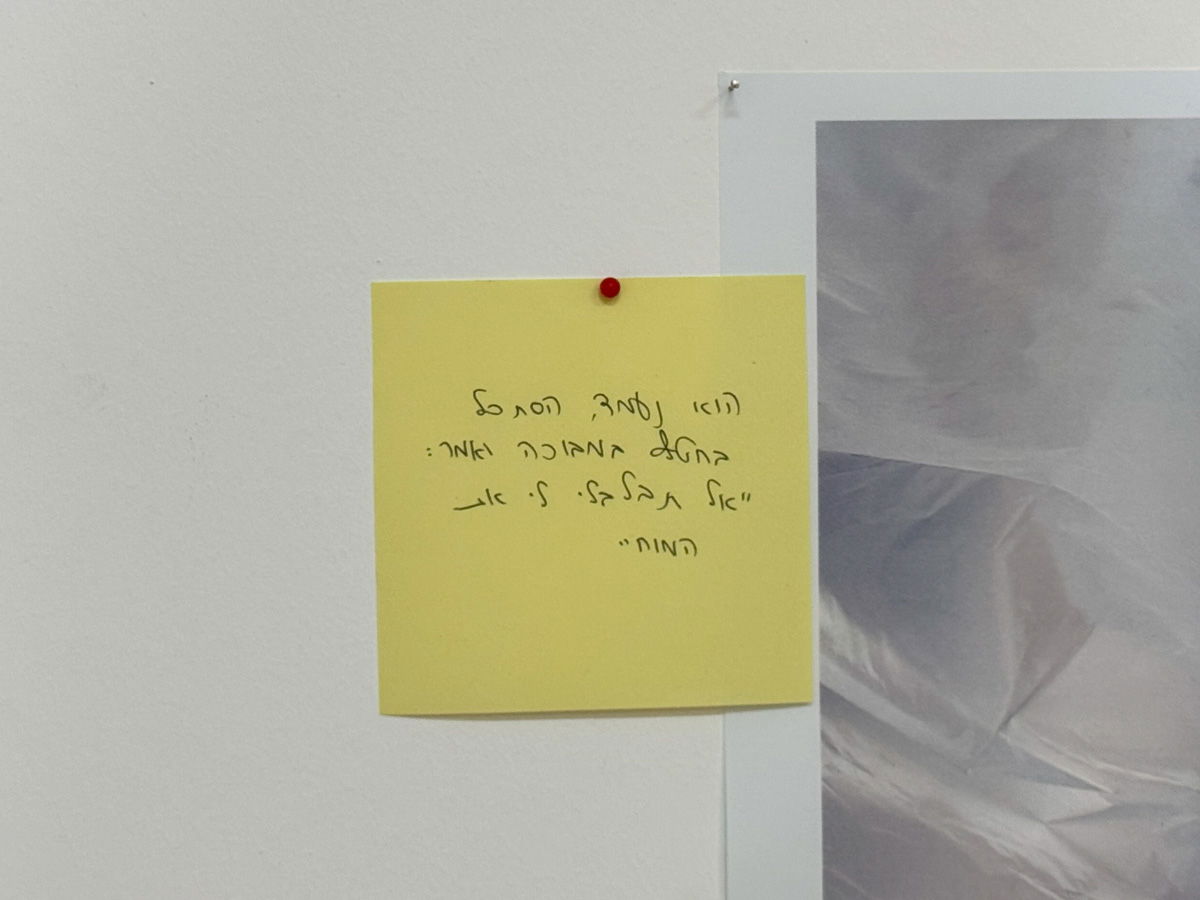 הוא נעמד, הסתכל
בחטף במבוכה ואמר:
"אל תבלבלי לי את
המוח"